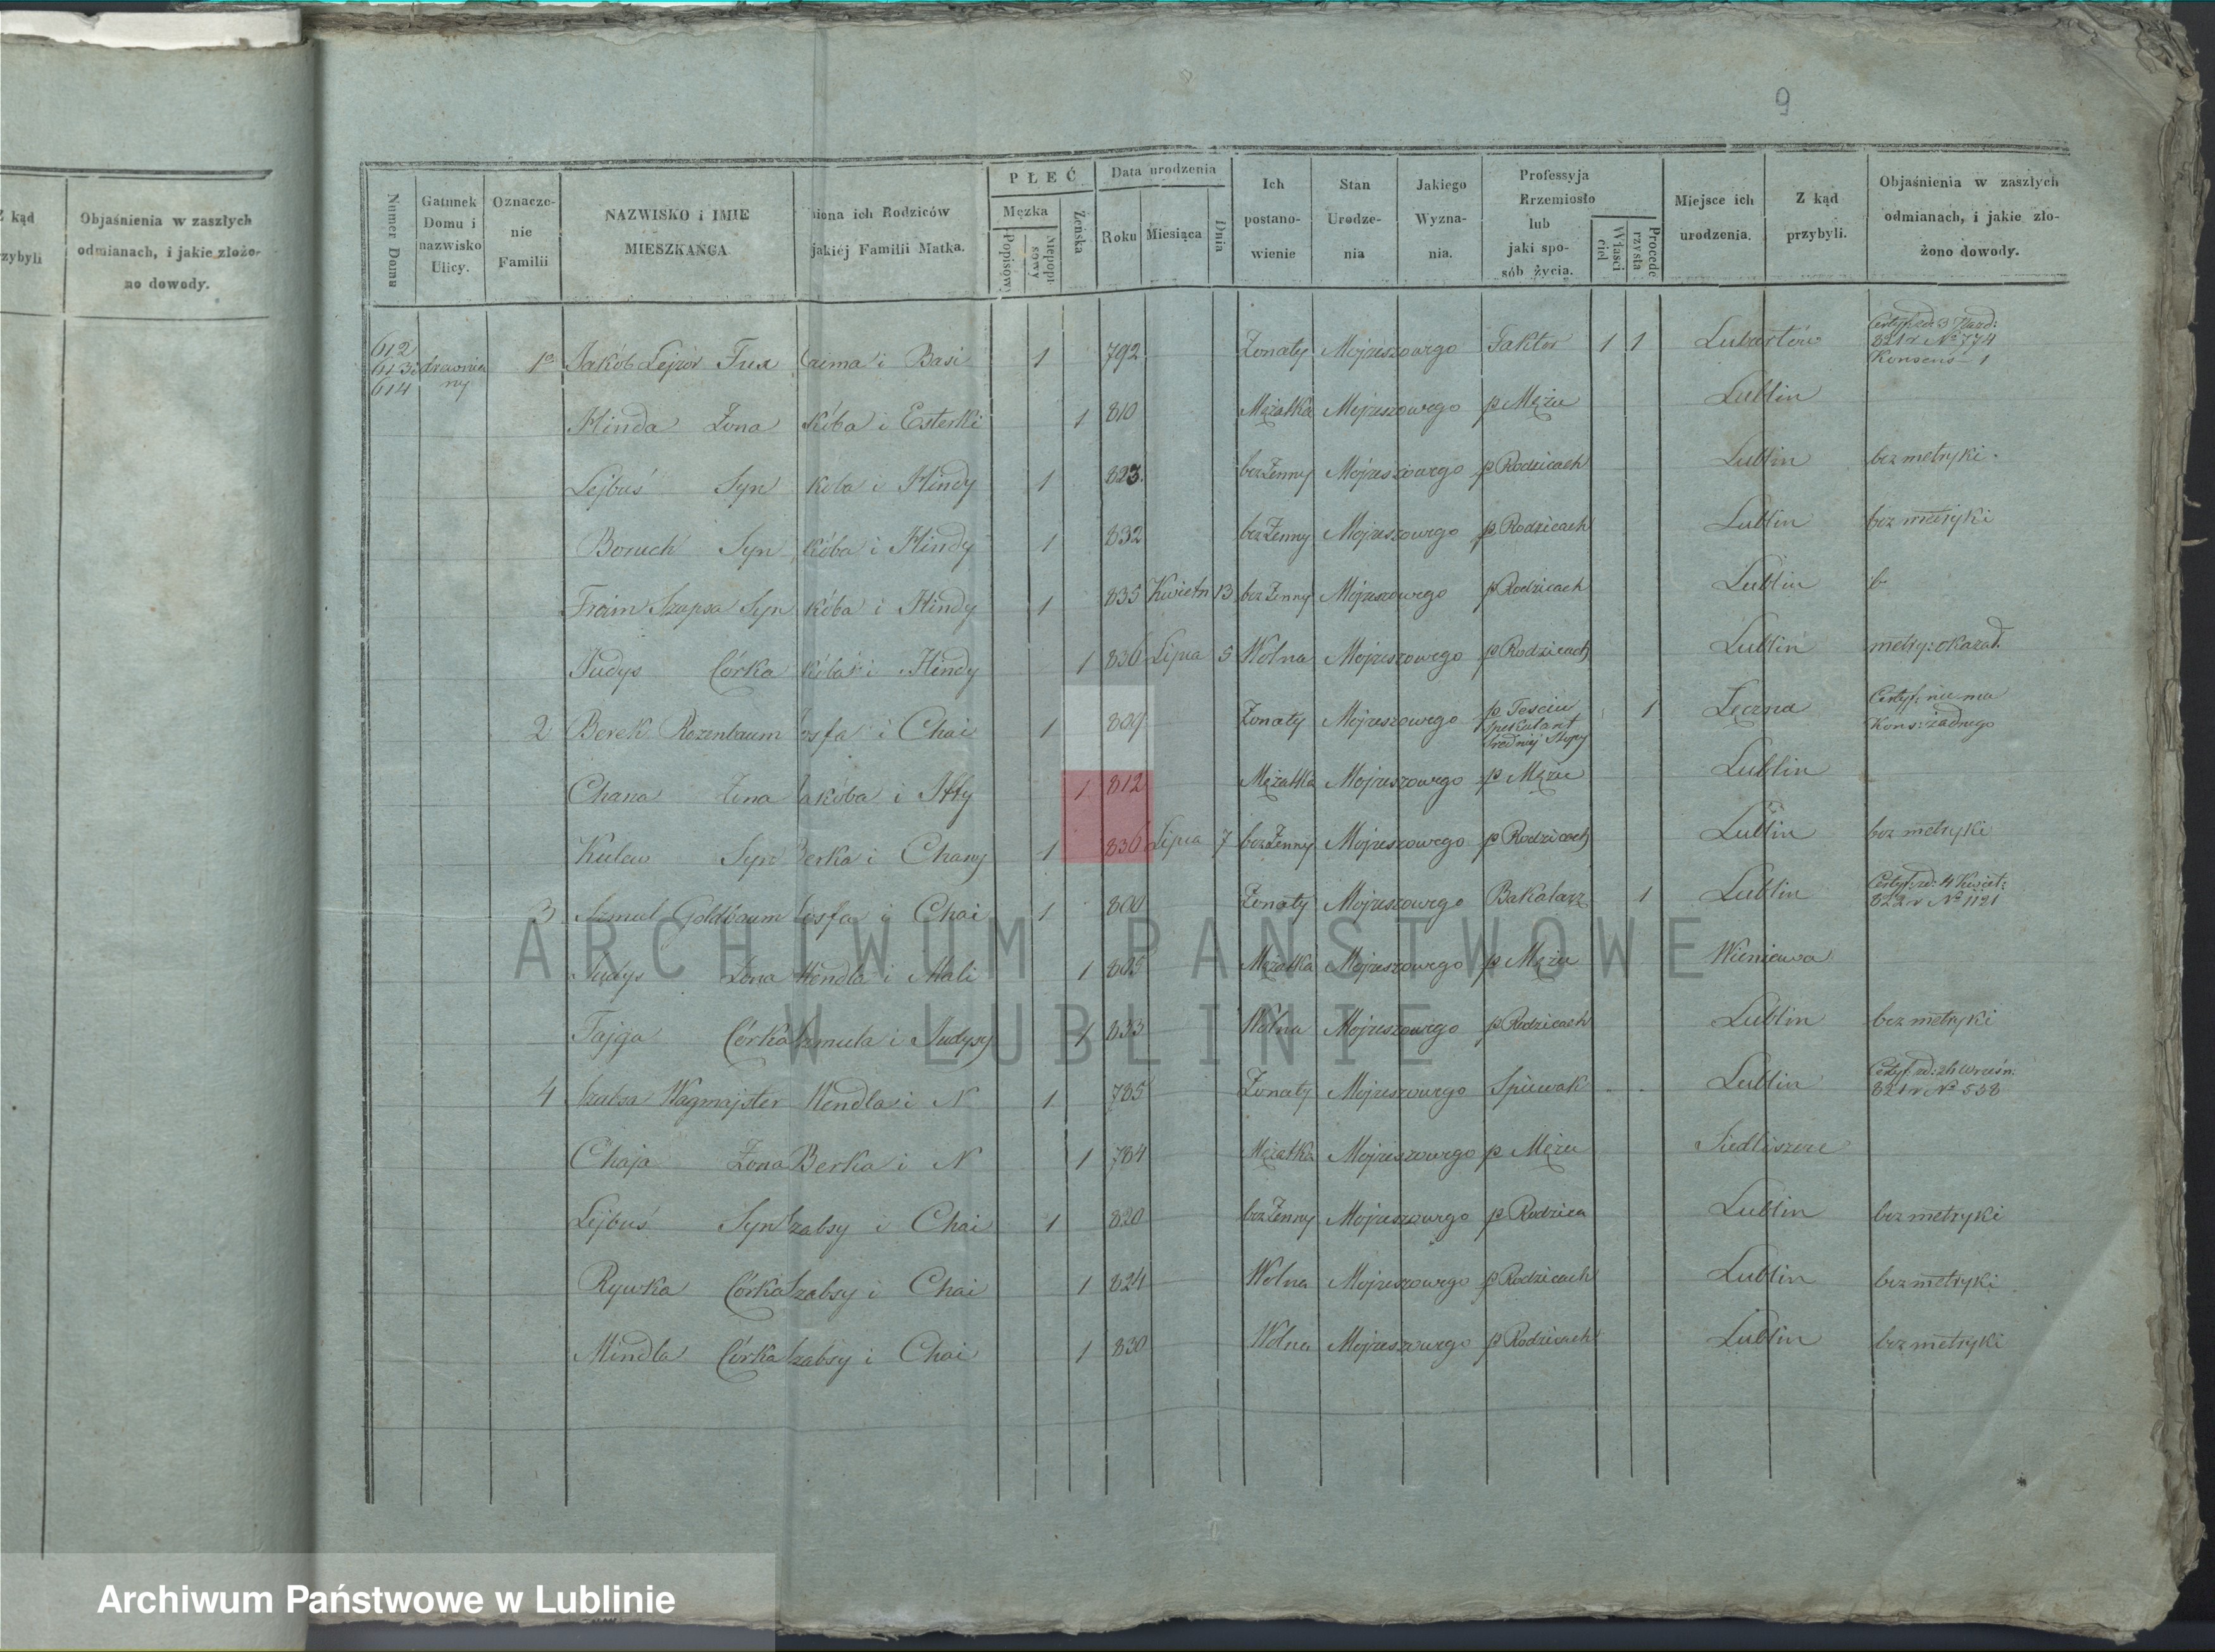 9
Z kąd
rzybyli
Objaśnienia w zaszłych
odmianach, i jakie złożo-
no dowody.
Numer Domu
Gatunek Domu i nazwisko Ulicy.
Oznacze-nie Familii
NAZWISKO i IMIE MIESZKAŃCA
miona ich Rodziców jakiéj Familii Matka.
PŁEĆ
Męzka
Popisowy
Niepopisowy
Żeńska
Data urodzenia
Roku
Miesiąca
Dnia
Ich postano-wienie
Stan Urodze-nia
Jakiego Wyzna-nia.
Professyja Rrzemiosło lub jaki spo-sób życia.
Właści ciel
Procede rzysta
Miejsce ich urodzenia.
Z kąd przybyli.
Objaśnienia w zaszłych odmianach, i jakie zło-żono dowody.
612 613 614 drewnia ny 1 Jakób Lejzor Fux aima i Basi 1 792 Żonaty Mojzeszowego Faktor 1 1 Lubartów 821 r No 774 Konsens 1
Hinda Żona kóba i Esterki 1 810 Mężatka Mojzeszowego p Mężu Lublin
Lejbuś Syn kóba i Hindy 1 823 bezżenny Mojzeszowego p Rodzicach Lublin bez metryki
Boruch Syn kóba i Hindy 1 832 bezżenny Mojzeszowego p Rodzicach Lublin bez metryki
Froim Szapsa Syn kóba i Hindy 1 835 Kwietn 13 bezżenny Mojzeszowego p Rodzicach Lublin b
Judys Córka kóba i Hindy 1 836 Lipca 5 Wolna Mojzeszowego p Rodzicach Lublin metry: okazał
2 Berek Rozenbaum osfa i Chai 1 809 Żonaty Mojzeszowego p Teściu Spekulant średniej Stopy 1 Łęczna Certyf: nie ma Kons: żadnego
Chana Żona akóba i Itty 1 812 Mężatka Mojzeszowego p Mężu Lublin
Syn Berka i Chany 1 836 Lipca 7 bezżenny Mojzeszowego p Rodzicach Lublin bez metryki
3 Szmul Goldbaum osfa i Chai 1 800 Żonaty Mojzeszowego Bakałarz 1 Lublin Certyf: zd: 4 Kwiet: 822 r No 1121
Judys Żona Mendla i Mali 1 805 Mężatka Mojzeszowego p Mężu Wieniawa
Fajga Córka Szmula i Judysy 1 833 Wolna Mojzeszowego p Rodzicach Lublin bez metryki
4 Szabsa Wagmajster Mendla i N 1 785 Żonaty Mojzeszowego Spiewak Lublin Certyf: zd: 24 Wrześn: 821 r No 538
Chaja Żona Berka i N 1 784 Mężatka Mojzeszowego p Mężu Siedliszcze
Lejbuś Syn Szabsy i Chai 1 820 bezżenny Mojzeszowego p Rodzica Lublin bez metryki
Rywka Córka Szabsy i Chai 1 824 Wolna Mojzeszowego p Rodzicach Lublin bez metryki
Mindla Córka Szabsy i Chai 1 830 Wolna Mojzeszowego p Rodzicach Lublin bez metryki
ARCHIWUM PAŃSTWOWE
W LUBLINIE
Archiwum Państwowe w Lublinie